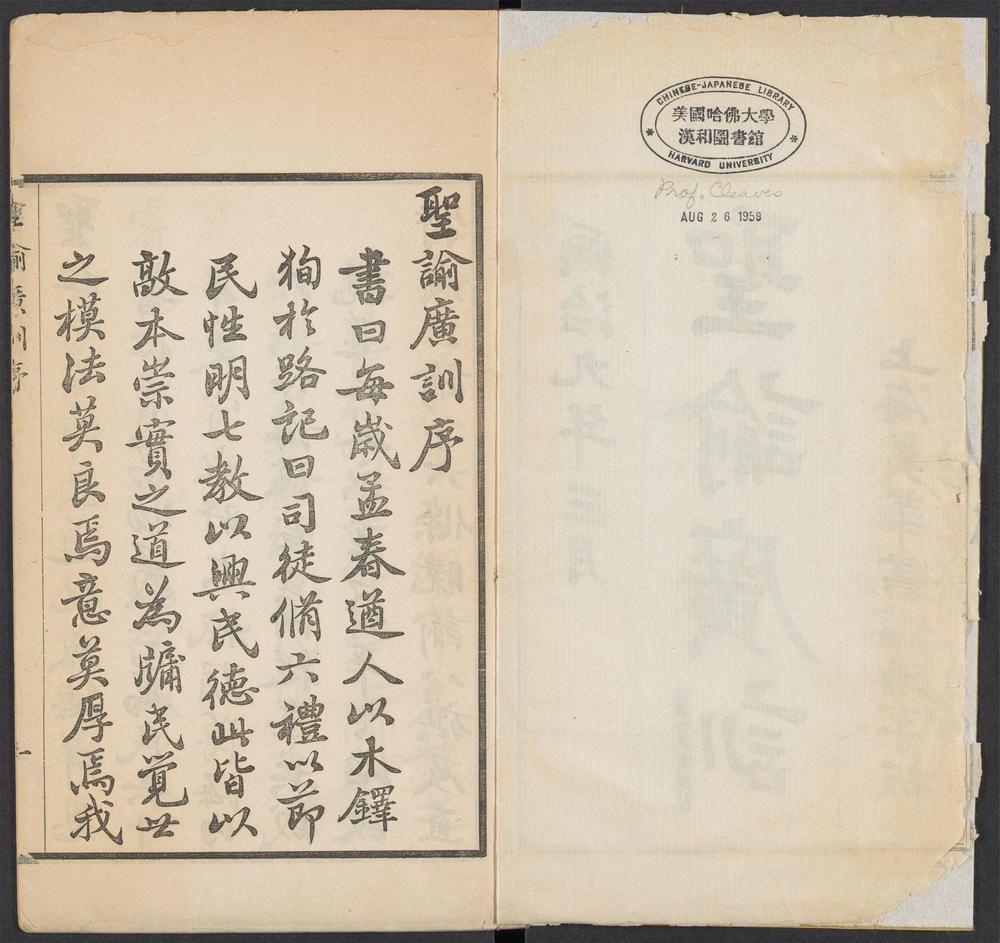 CHINESE-JAPANESE LIBRARY
美國哈佛大學
漢和圖書館
HARVARD UNIVERSITY
Prof. Cleaves
AUG 26 1959
聖諭廣訓序
書曰每歲孟春遒人以木鐸
狥於路記曰司徒脩六禮以節
民性明七教以興民德此皆以
敦本崇實之道為牖民覺世
之模法莫良焉意莫厚焉我
聖諭廣訓序